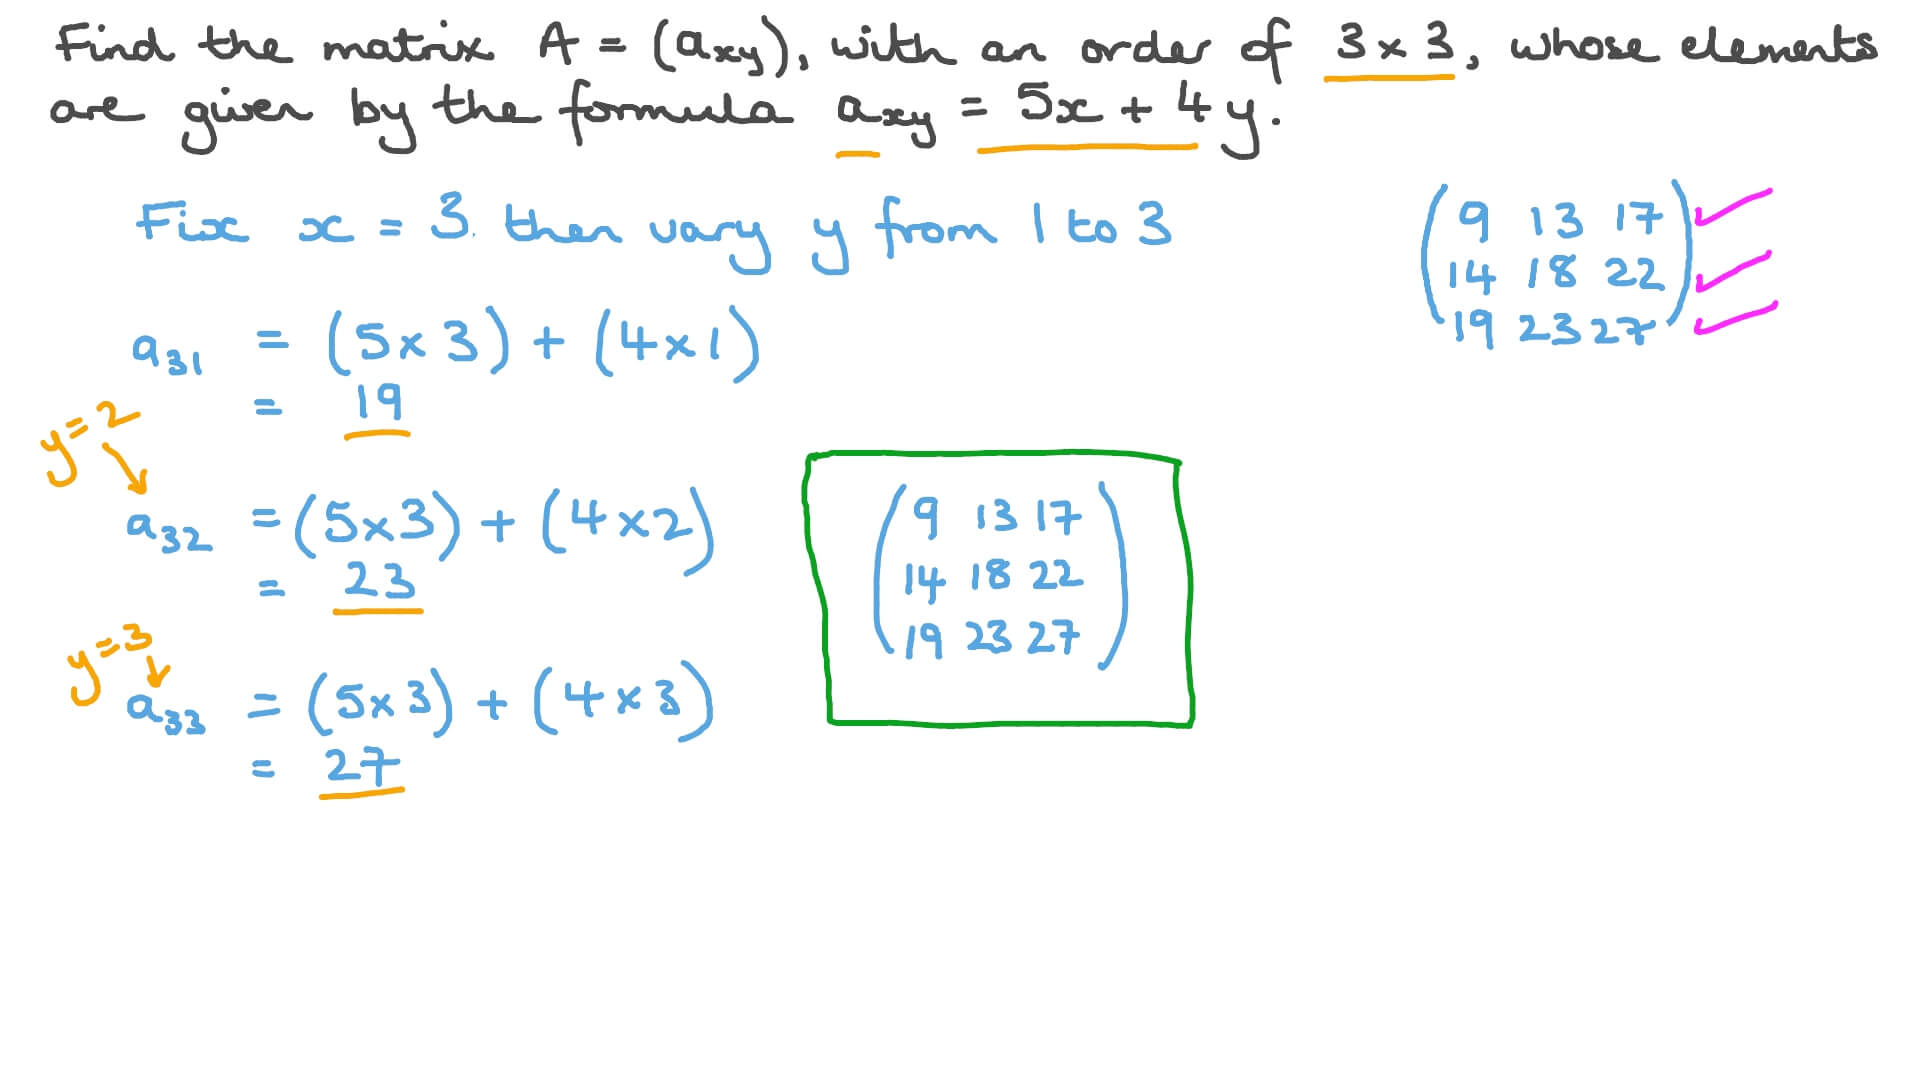 Find the matrix A = (axy), with an order of 3 × 3, whose elements
are given by the formula axy = 5x + 4y.
Fix x = 3. then vary y from 1 to 3
(9 13 17)
(14 18 22)
(19 23 27)
a31 = (5×3) + (4×1)
= 19
y=2
a32 = (5×3) + (4×2)
= 23
y=3
a33 = (5×3) + (4×3)
= 27
(9 13 17)
(14 18 22)
(19 23 27)